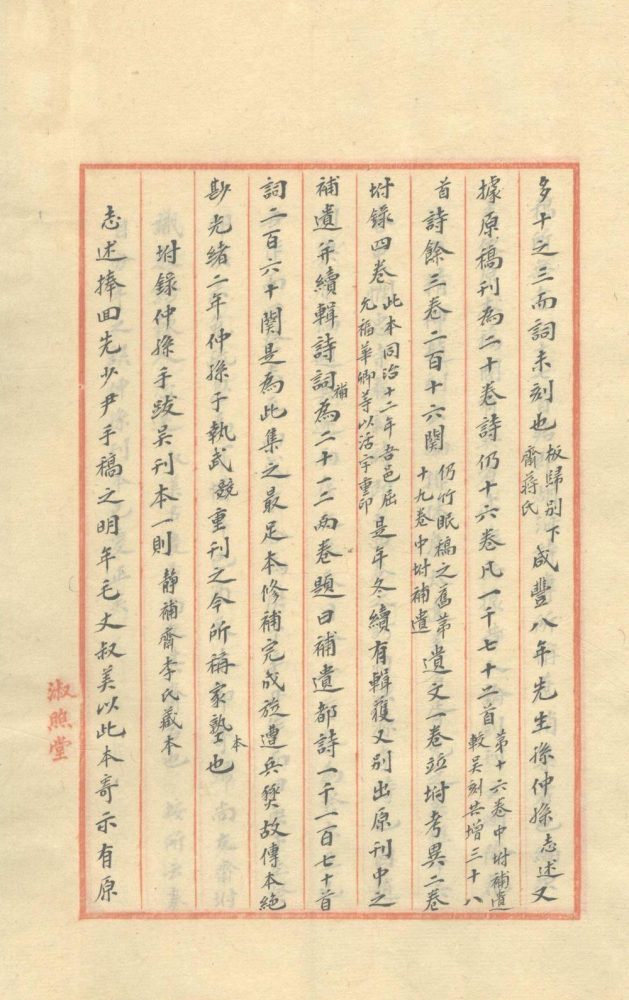 多十之三而詞未刻也板歸別下齋蔣氏咸豐八年先生孫仲孫志述又
據原稿刊為二十卷詩仍十六卷凡一千七十二首第十六卷中坿補遺較吳刻共增三十八
首詩餘三卷二百十六闋仍竹眠稿之舊第十九卷中坿補遺遺文一卷並坿考異二卷
坿錄四卷此本同治十二年吾邑屈允福華卿等以活字重印是年冬續有輯獲又別出原刊中之
補遺并續輯詩詞補為二十一二兩卷題曰補遺都詩一千一百七十首
詞二百六十闋是為此集之最足本修補完成旋遭兵燹故傳本絕
尠光緒二年仲孫子執武兢重刊之今所稱家塾本也
坿錄仲孫手跋吳刊本一則靜補齋李氏藏本
志述捧回先少尹手稿之明年毛丈叔美以此本寄示有原
淑照堂